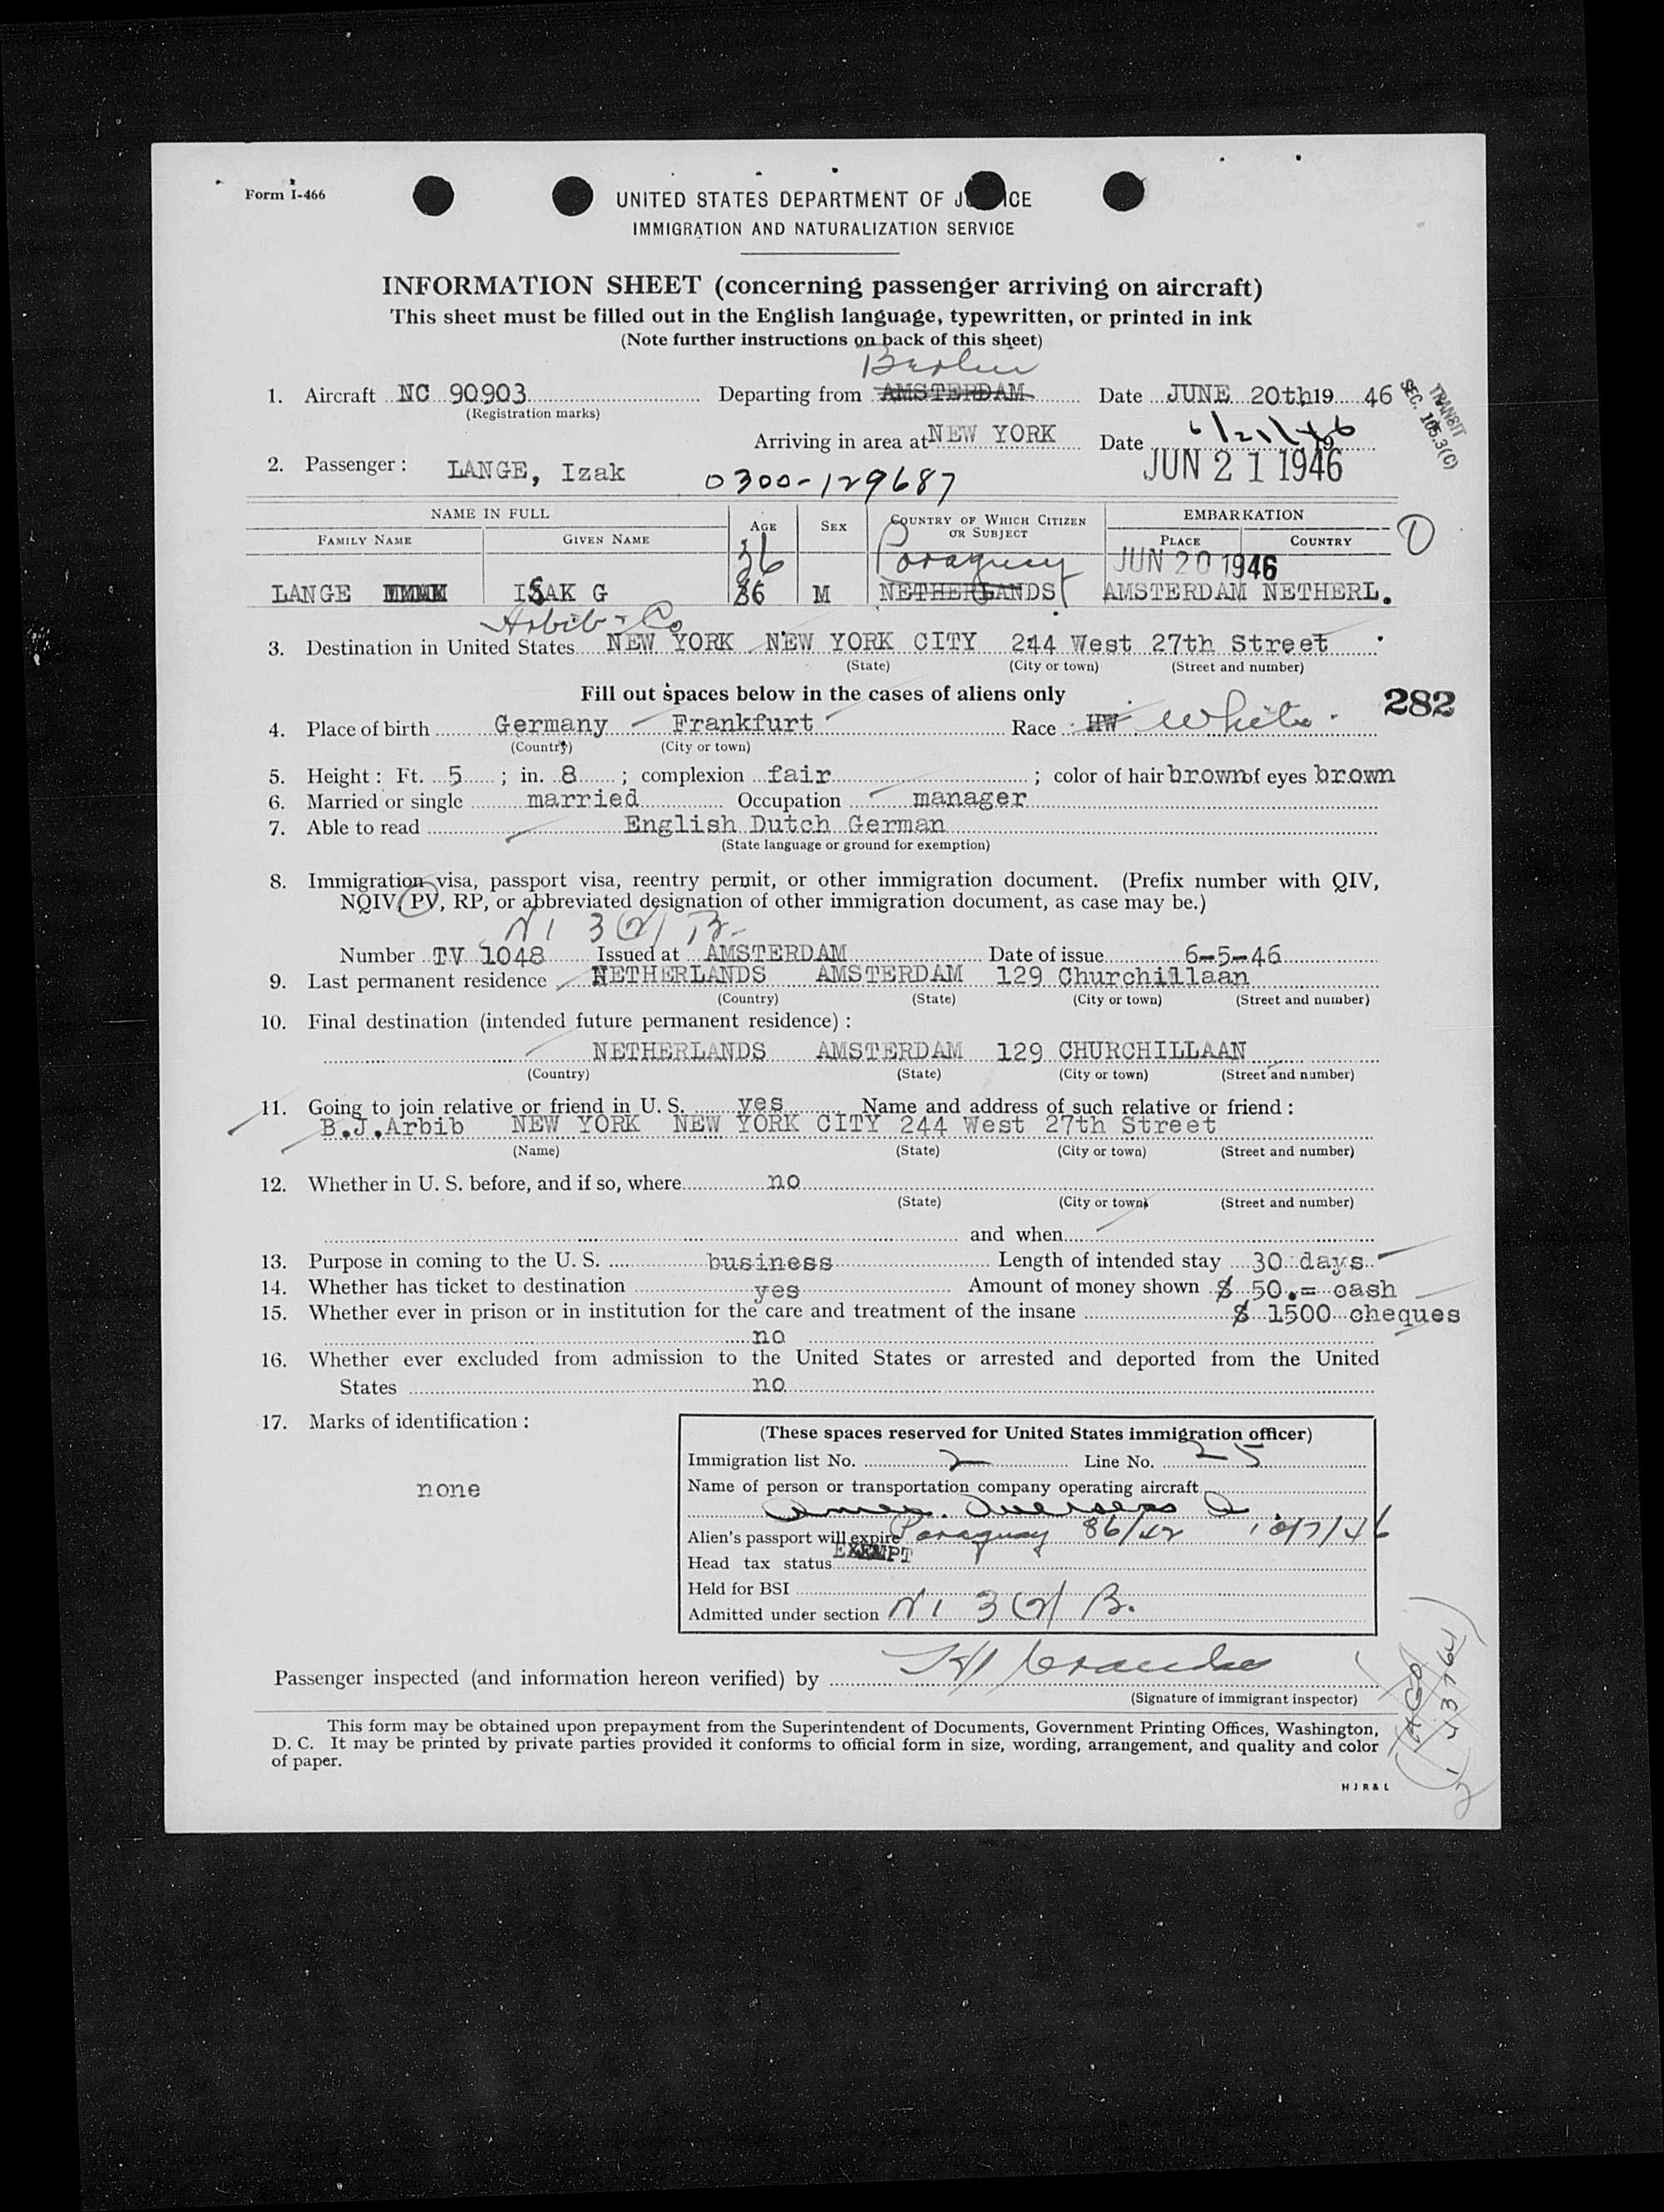 Form I-466
UNITED STATES DEPARTMENT OF JUSTICE
IMMIGRATION AND NATURALIZATION SERVICE
INFORMATION SHEET (concerning passenger arriving on aircraft)
This sheet must be filled out in the English language, typewritten, or printed in ink
(Note further instructions on back of this sheet)
Berlin
1. Aircraft NC 90903 Departing from AMSTERDAM Date JUNE 20th, 19 46
(Registration marks)
TRANSIT
SEC. 105.3(C)
Arriving in area at NEW YORK Date 6/21/46 19
JUN 21 1946
2. Passenger: LANGE, Izak 0300-129687
NAME IN FULL AGE SEX COUNTRY OF WHICH CITIZEN OR SUBJECT EMBARKATION
FAMILY NAME GIVEN NAME PLACE COUNTRY
36 Paraguay JUN 20 1946
LANGE ISAK G 36 M NETHERLANDS AMSTERDAM NETHERL.
Arbib & Co
3. Destination in United States NEW YORK NEW YORK CITY 244 West 27th Street
(State) (City or town) (Street and number)
Fill out spaces below in the cases of aliens only
282
4. Place of birth Germany Frankfurt Race HW White
(Country) (City or town)
5. Height: Ft. 5 ; in. 8 ; complexion fair ; color of hair brown of eyes brown
6. Married or single married Occupation manager
7. Able to read English Dutch German
(State language or ground for exemption)
8. Immigration visa, passport visa, reentry permit, or other immigration document. (Prefix number with QIV,
NQIV, PV, RP, or abbreviated designation of other immigration document, as case may be.)
3(2) B.
Number TV 1048 Issued at AMSTERDAM Date of issue 6-5-46
9. Last permanent residence NETHERLANDS AMSTERDAM 129 Churchillaan
(Country) (State) (City or town) (Street and number)
10. Final destination (intended future permanent residence):
NETHERLANDS AMSTERDAM 129 CHURCHILLAAN
(Country) (State) (City or town) (Street and number)
11. Going to join relative or friend in U. S. yes Name and address of such relative or friend:
B.J.Arbib NEW YORK NEW YORK CITY 244 West 27th Street
(Name) (State) (City or town) (Street and number)
12. Whether in U. S. before, and if so, where no
(State) (City or town) (Street and number)
and when
13. Purpose in coming to the U. S. business Length of intended stay 30 days
14. Whether has ticket to destination yes Amount of money shown $ 50.= cash
15. Whether ever in prison or in institution for the care and treatment of the insane $ 1500 cheques
no
16. Whether ever excluded from admission to the United States or arrested and deported from the United
States no
17. Marks of identification:
none
(These spaces reserved for United States immigration officer)
Immigration list No. 2 Line No. 25
Name of person or transportation company operating aircraft
Amer. Overseas
Alien's passport will expire Paraguay 86/42 10/7/46
Head tax status EXEMPT
Held for BSI
Admitted under section 3(2) B.
Passenger inspected (and information hereon verified) by
(Signature of immigrant inspector)
This form may be obtained upon prepayment from the Superintendent of Documents, Government Printing Offices, Washington,
D. C. It may be printed by private parties provided it conforms to official form in size, wording, arrangement, and quality and color
of paper.
HJR&L